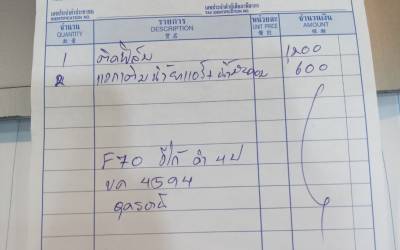 เลขประจำตัวประชาชน เลขประจำตัวผู้เสียภาษีอากร
IDENTIFICATION NO. TAX IDENTIFICATION NO.
จำนวน รายการ หน่วยละ จำนวนเงิน
QUANTITY DESCRIPTION UNIT PRICE AMOUNT
1 ติดฟิล์ม 1,200
2 600
F70 อีโก้ ดำ 4ป
ขค 4594
อุดรธานี